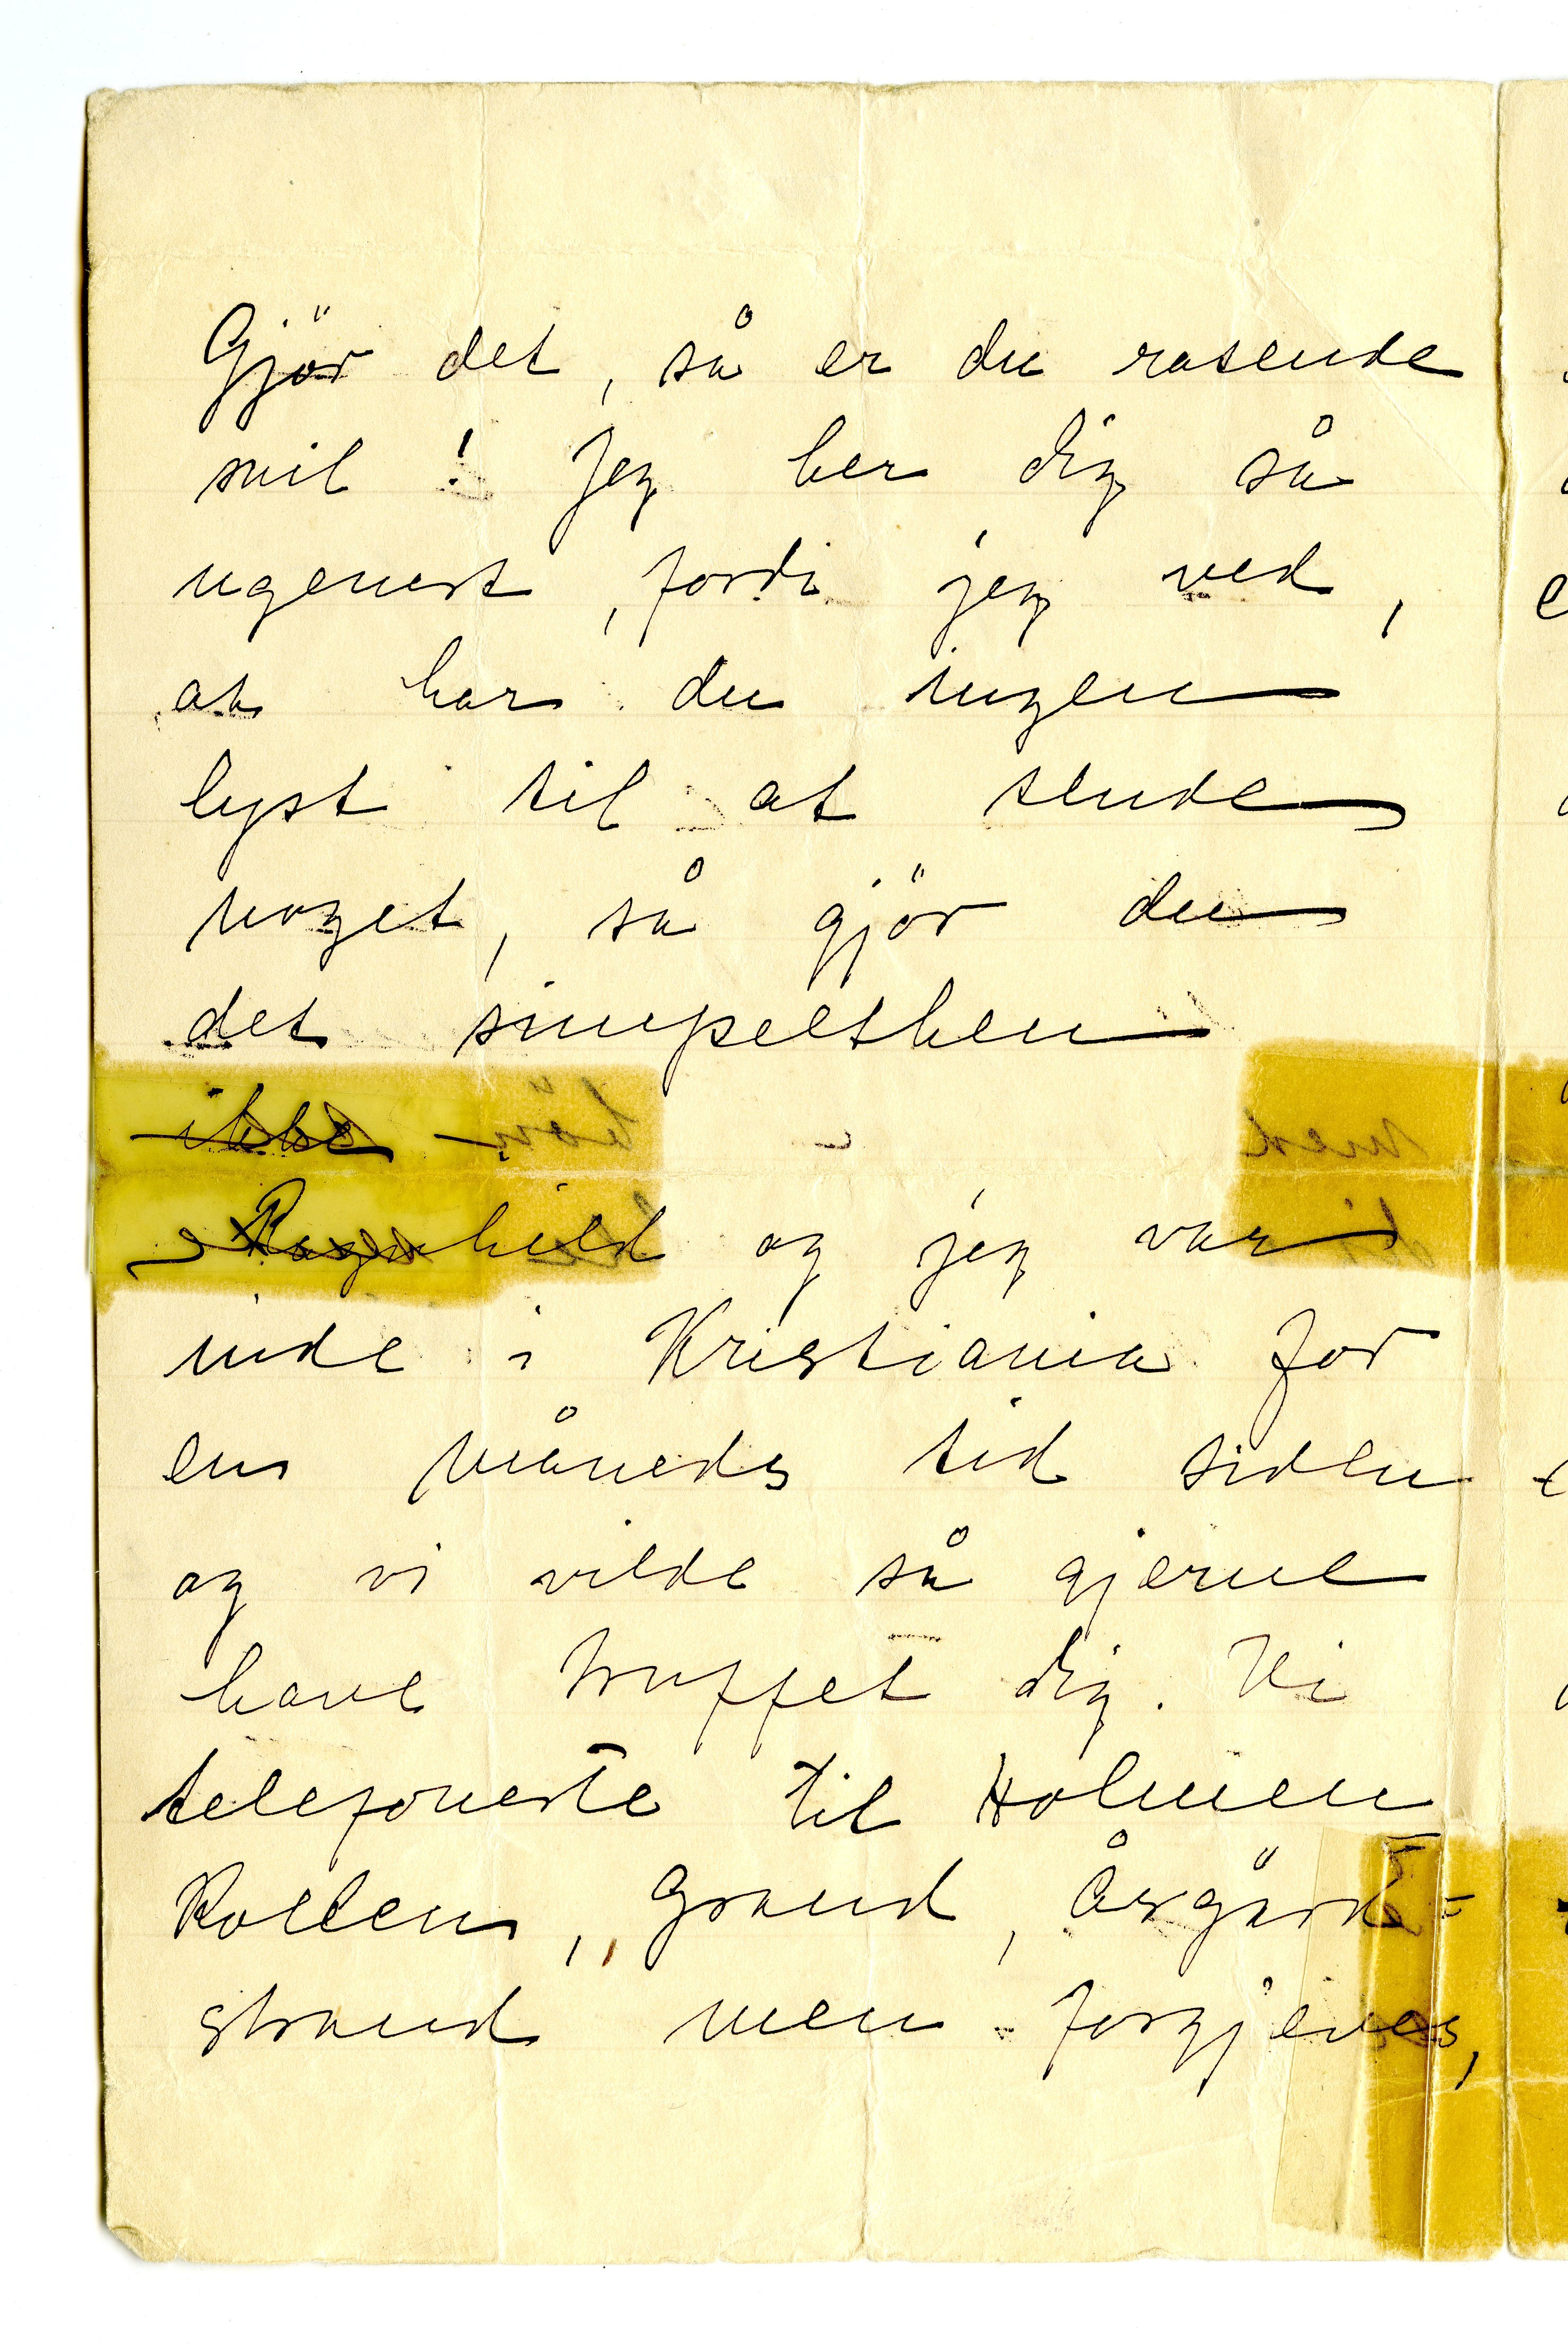 Gjör det, så er du rasende
snil! Jeg ber dig så
ugenert, fordi jeg ved,
at har du ingen
lyst til at sende
noget, så gjör du
det simpelthen
ikke –
Ragnhild og jeg var
inde i Kristiania for
en måneds tid siden
og vi vilde så gjerne
have truffet dig. Vi
telefonerte til Holmen
Kollen, Grand, Åsgård=
strand men forgjæves,